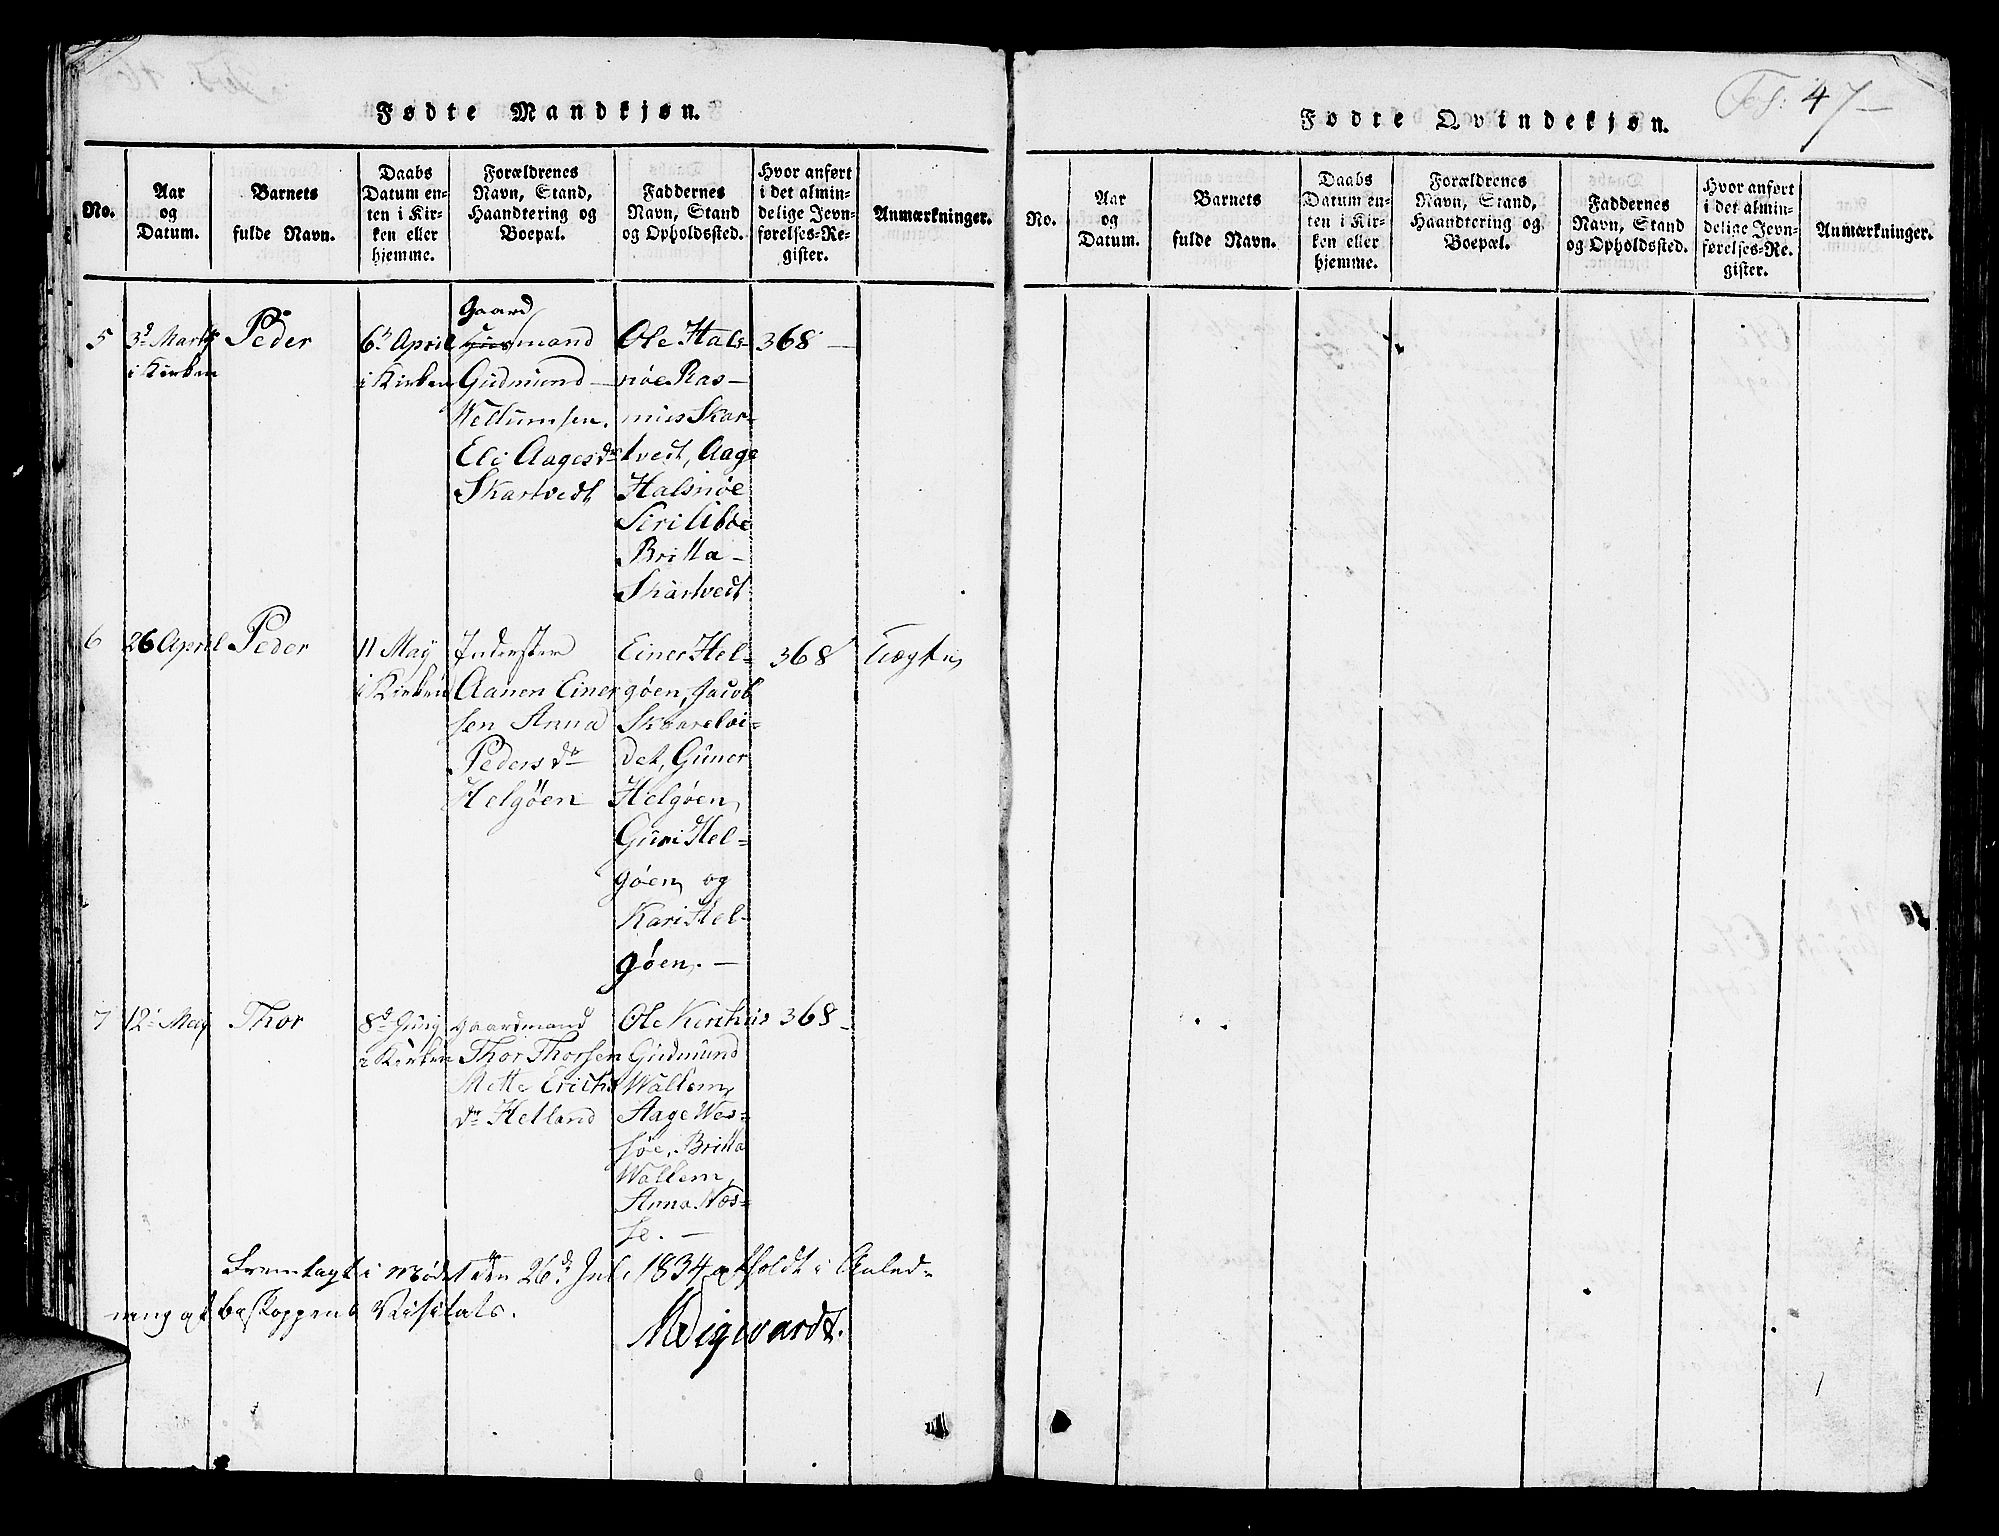 Fødte Mandkjøn.
No.
Aar
og
Datum.
Barnets
fulde Navn.
Daabs
Datum en-
ten i Kir-
ken eller
hjemme.
Forældrenes
Navn, Stand,
Haandtering og
Boepæl.
Faddernes
Navn, Stand
og Opholdssted.
Hvor anført
i det almin-
delige Jevn-
førelses-Re-
gister.
Anmærkninger.
5
3d Marts
i Kirken
Peder
6te April
i Kirken
Gaard
Huusmand
Gudmund
Wellumsen.
Eli Aagesdr
Skartvedt
Ole Hals-
nøe Ras-
mus Skar-
tvedt, Aage
Halsnøe
Siri Liboe
Britta
Skartvedt
368 —
6
26 April
Peder
11 May
i Kirken
Inderster
Aanen Einer
sen Anna
Pedersdr
Helgøen
Einer Hel-
gøen, Jacob
Skaarelvi-
det, Guner
Helgøen,
Guri Hel-
gøen, og
Kari Hel-
gøen. —
368
7
12 May
Thor
8d Juny
i Kirken
gaardmand
Thor Thorsen
Mette Erichs
dr Helland
Ole Kirkhus
Gudmund
Wallem,
Aage Wes-
søe, Britta
Wallem,
Anna Næs-
se. —
368 —
Fremlagt i Mødet den 26d Juli 1834 afholdt i Anled-
ning af beskoppens Visitats.
Fødte Qvindekjøn.
Fol: 47 —
No.
Aar
og
Datum.
Barnets
fulde Navn.
Daabs
Datum en-
ten i Kir-
ken eller
hjemme.
Forældrenes
Navn, Stand,
Haandtering og
Boepæl.
Faddernes
Navn, Stand
og Opholdssted.
Hvor anført
i det almin-
delige Jevn-
førelses-Re-
gister.
Anmærkninger.